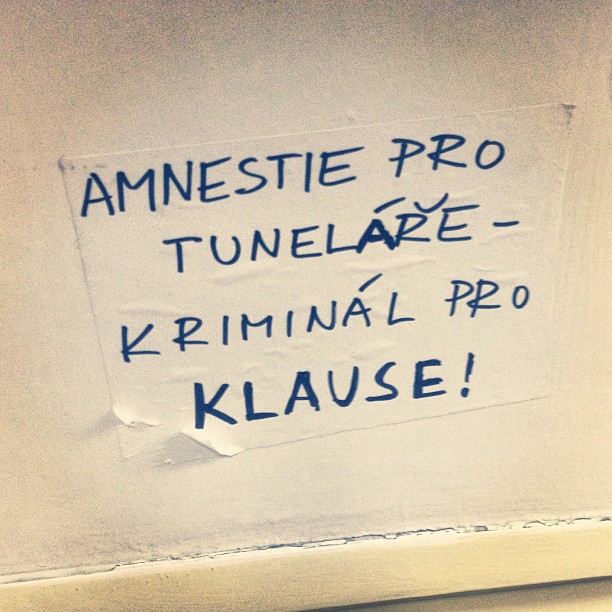 AMNESTIE PRO
TUNELÁŘE -
KRIMINÁL PRO
KLAUSE!